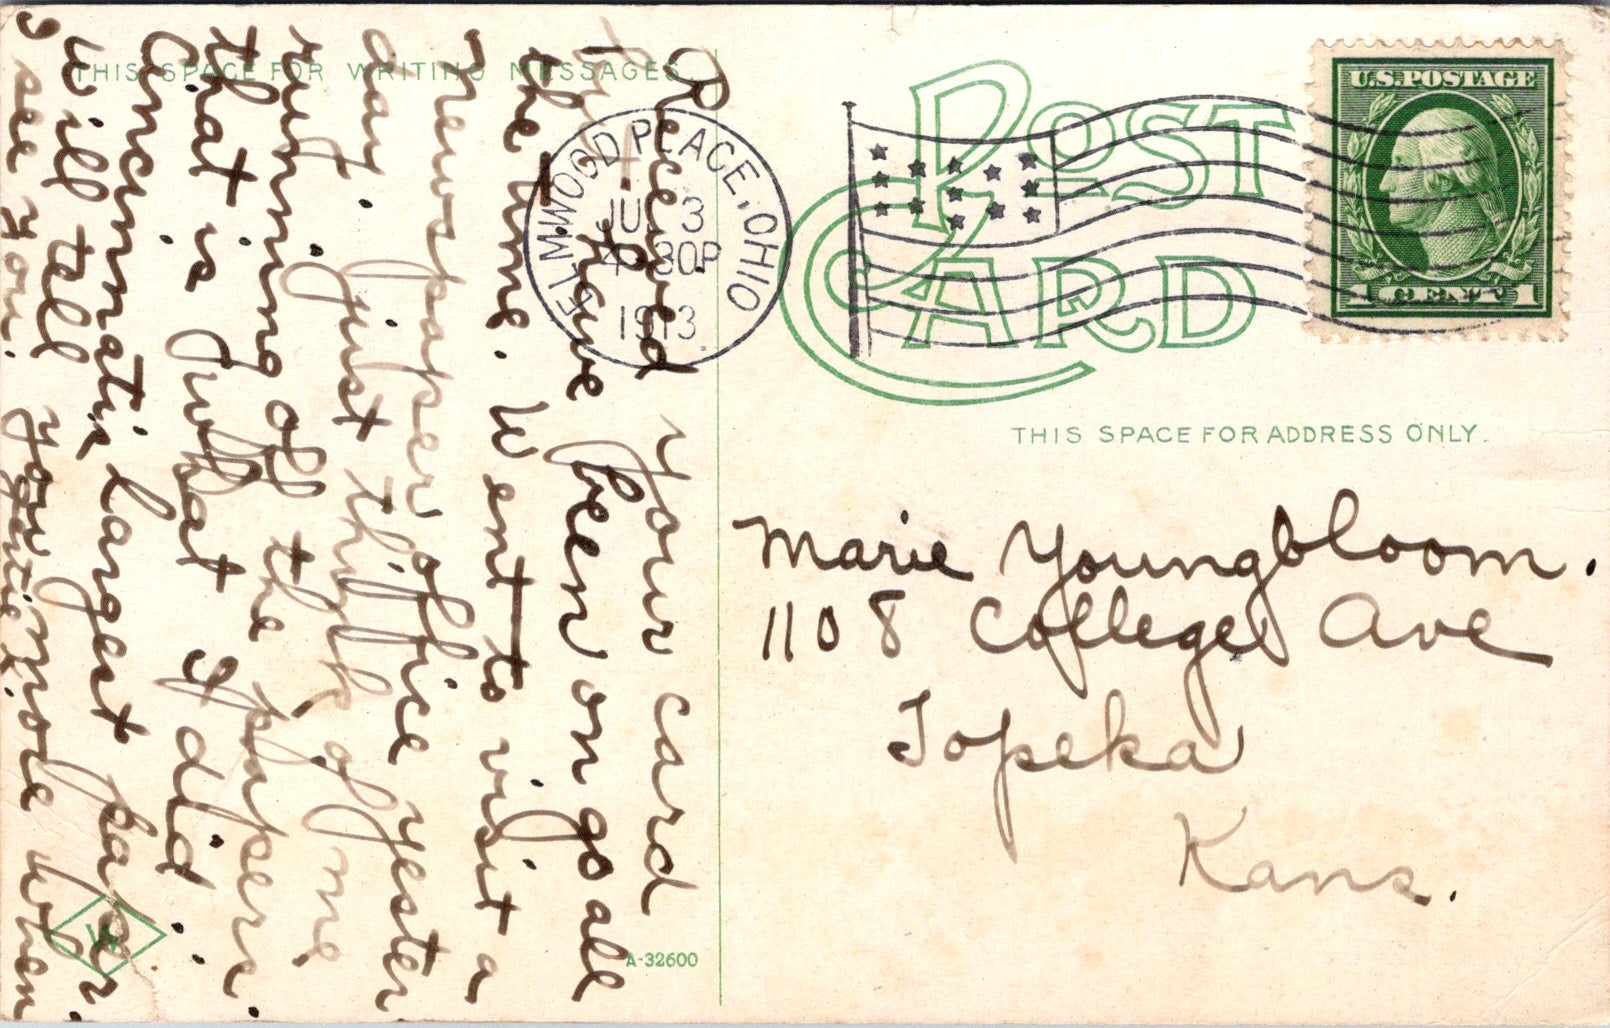 THIS SPACE FOR WRITING MESSAGES
Received your card
I have been on go all
the time. Went to visit a
newspaper office yester
day. Just think of me
running off the papers.
that is just what I did.
Cincinnatis largest paper
will tell you more when
I see you.
A-32600
W
ELMWOOD PLACE, OHIO
3
30P
1913
POST CARD
U.S. POSTAGE
1 CENT 1
THIS SPACE FOR ADDRESS ONLY.
Marie Youngbloom.
1108 College Ave
Topeka
Kans.